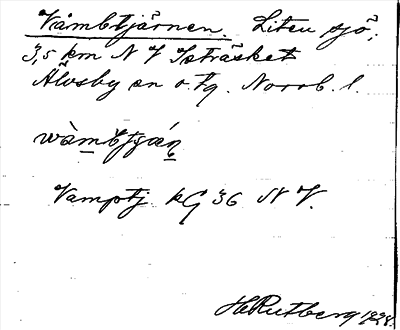 Våmbtjärnen. Liten sjö,
3,5 km N V Isträsket
Älvsby sn o. tg. Norrb. l.
wàmbtjǽn
Vamptj kG 36 N V.
H. Rutberg 1928.